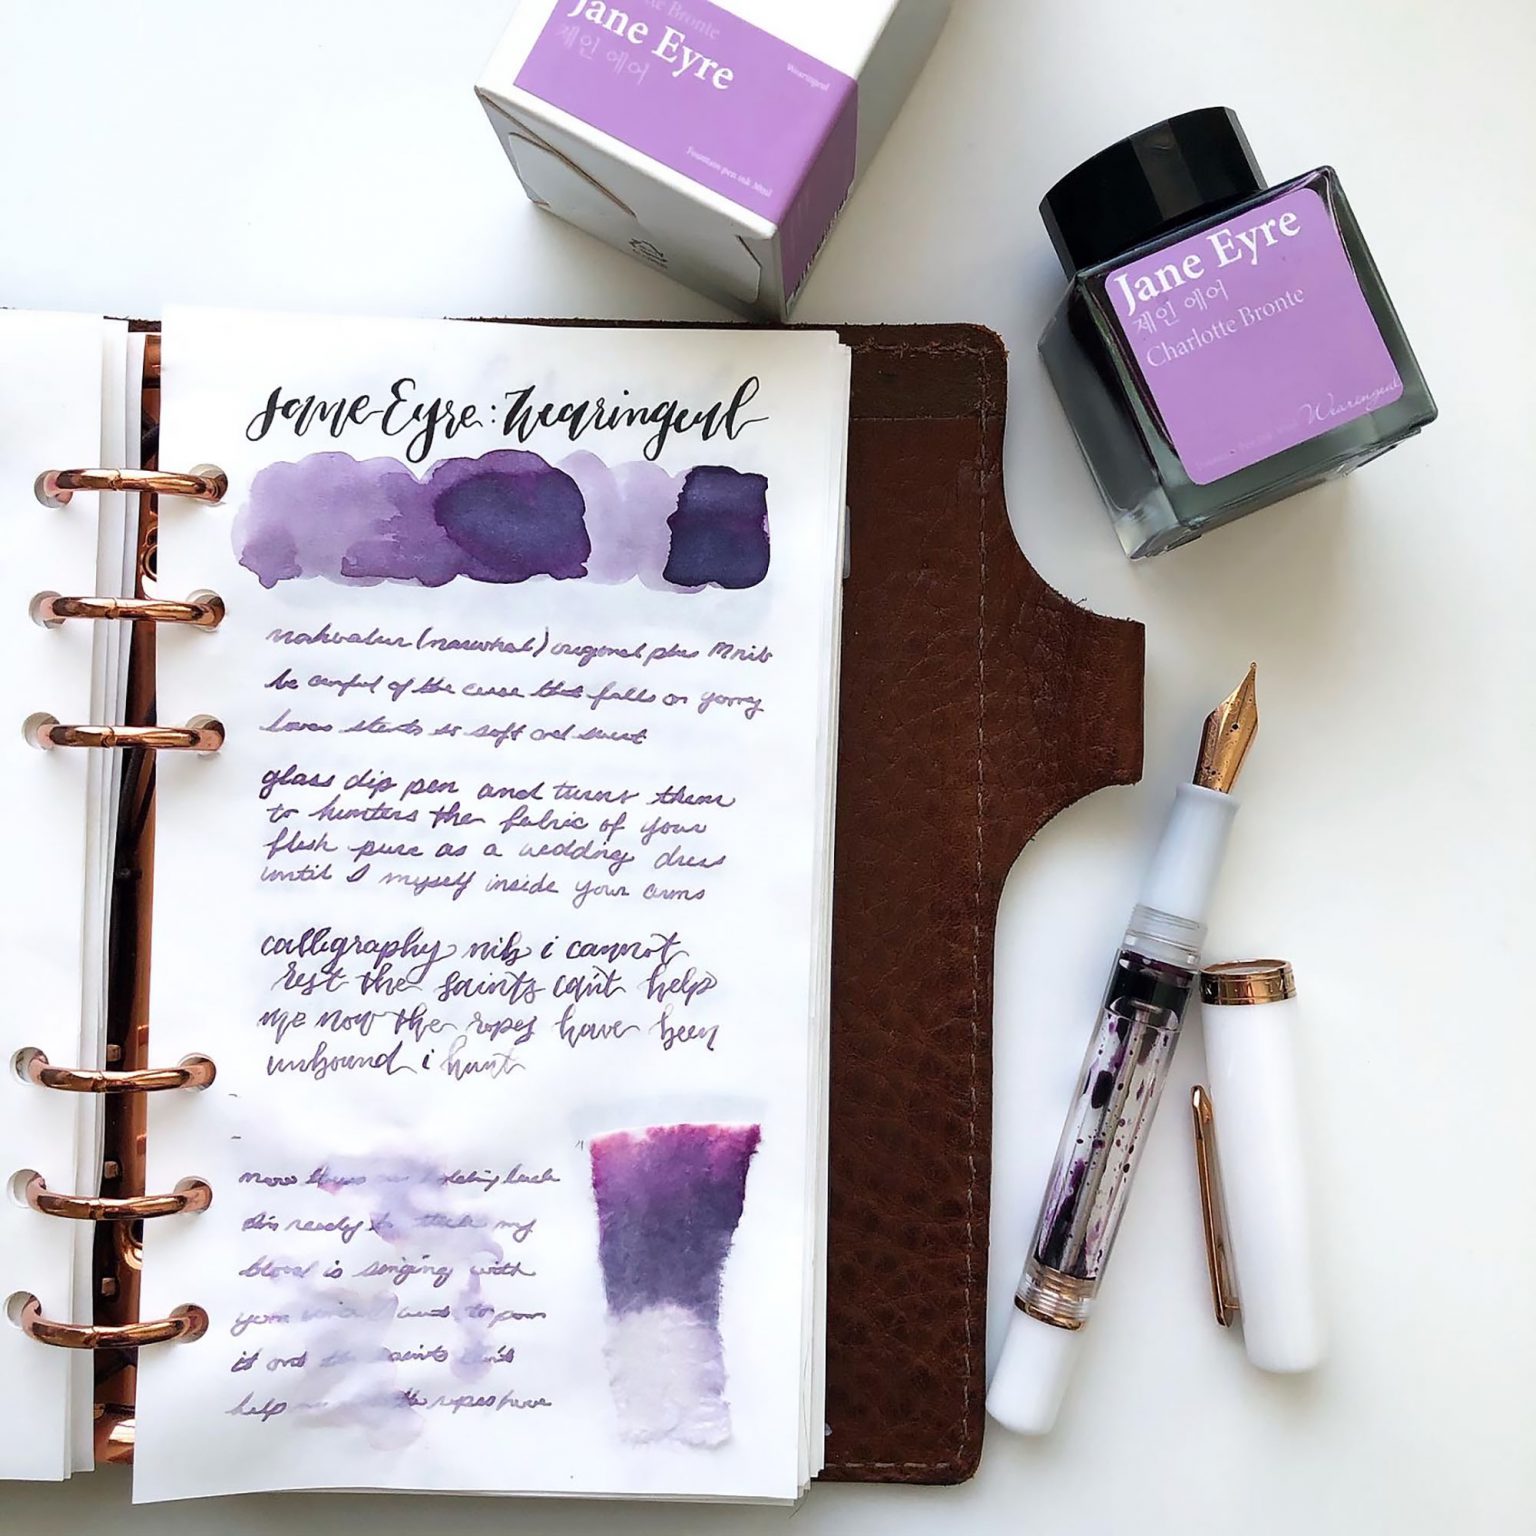 Jane Eyre
제인 에어
Wearingeul
Fountain pen ink 30ml
Jane Eyre
제인 에어
Charlotte Bronte
Wearingeul
Jane Eyre: Wearingeul
nahvalur (narwhal) original plus M nib
be careful of the curse that falls on young
lovers starts so soft and sweet
glass dip pen and turns them
to hunters the fabric of your
flesh pure as a wedding dress
until I myself inside your arms
calligraphy nib i cannot
rest the saints can't help
me now the ropes have been
unbound i hunt
holding back
this ready to my
blood is singing with
your want to pour
it out the saints can't
help the ropes have